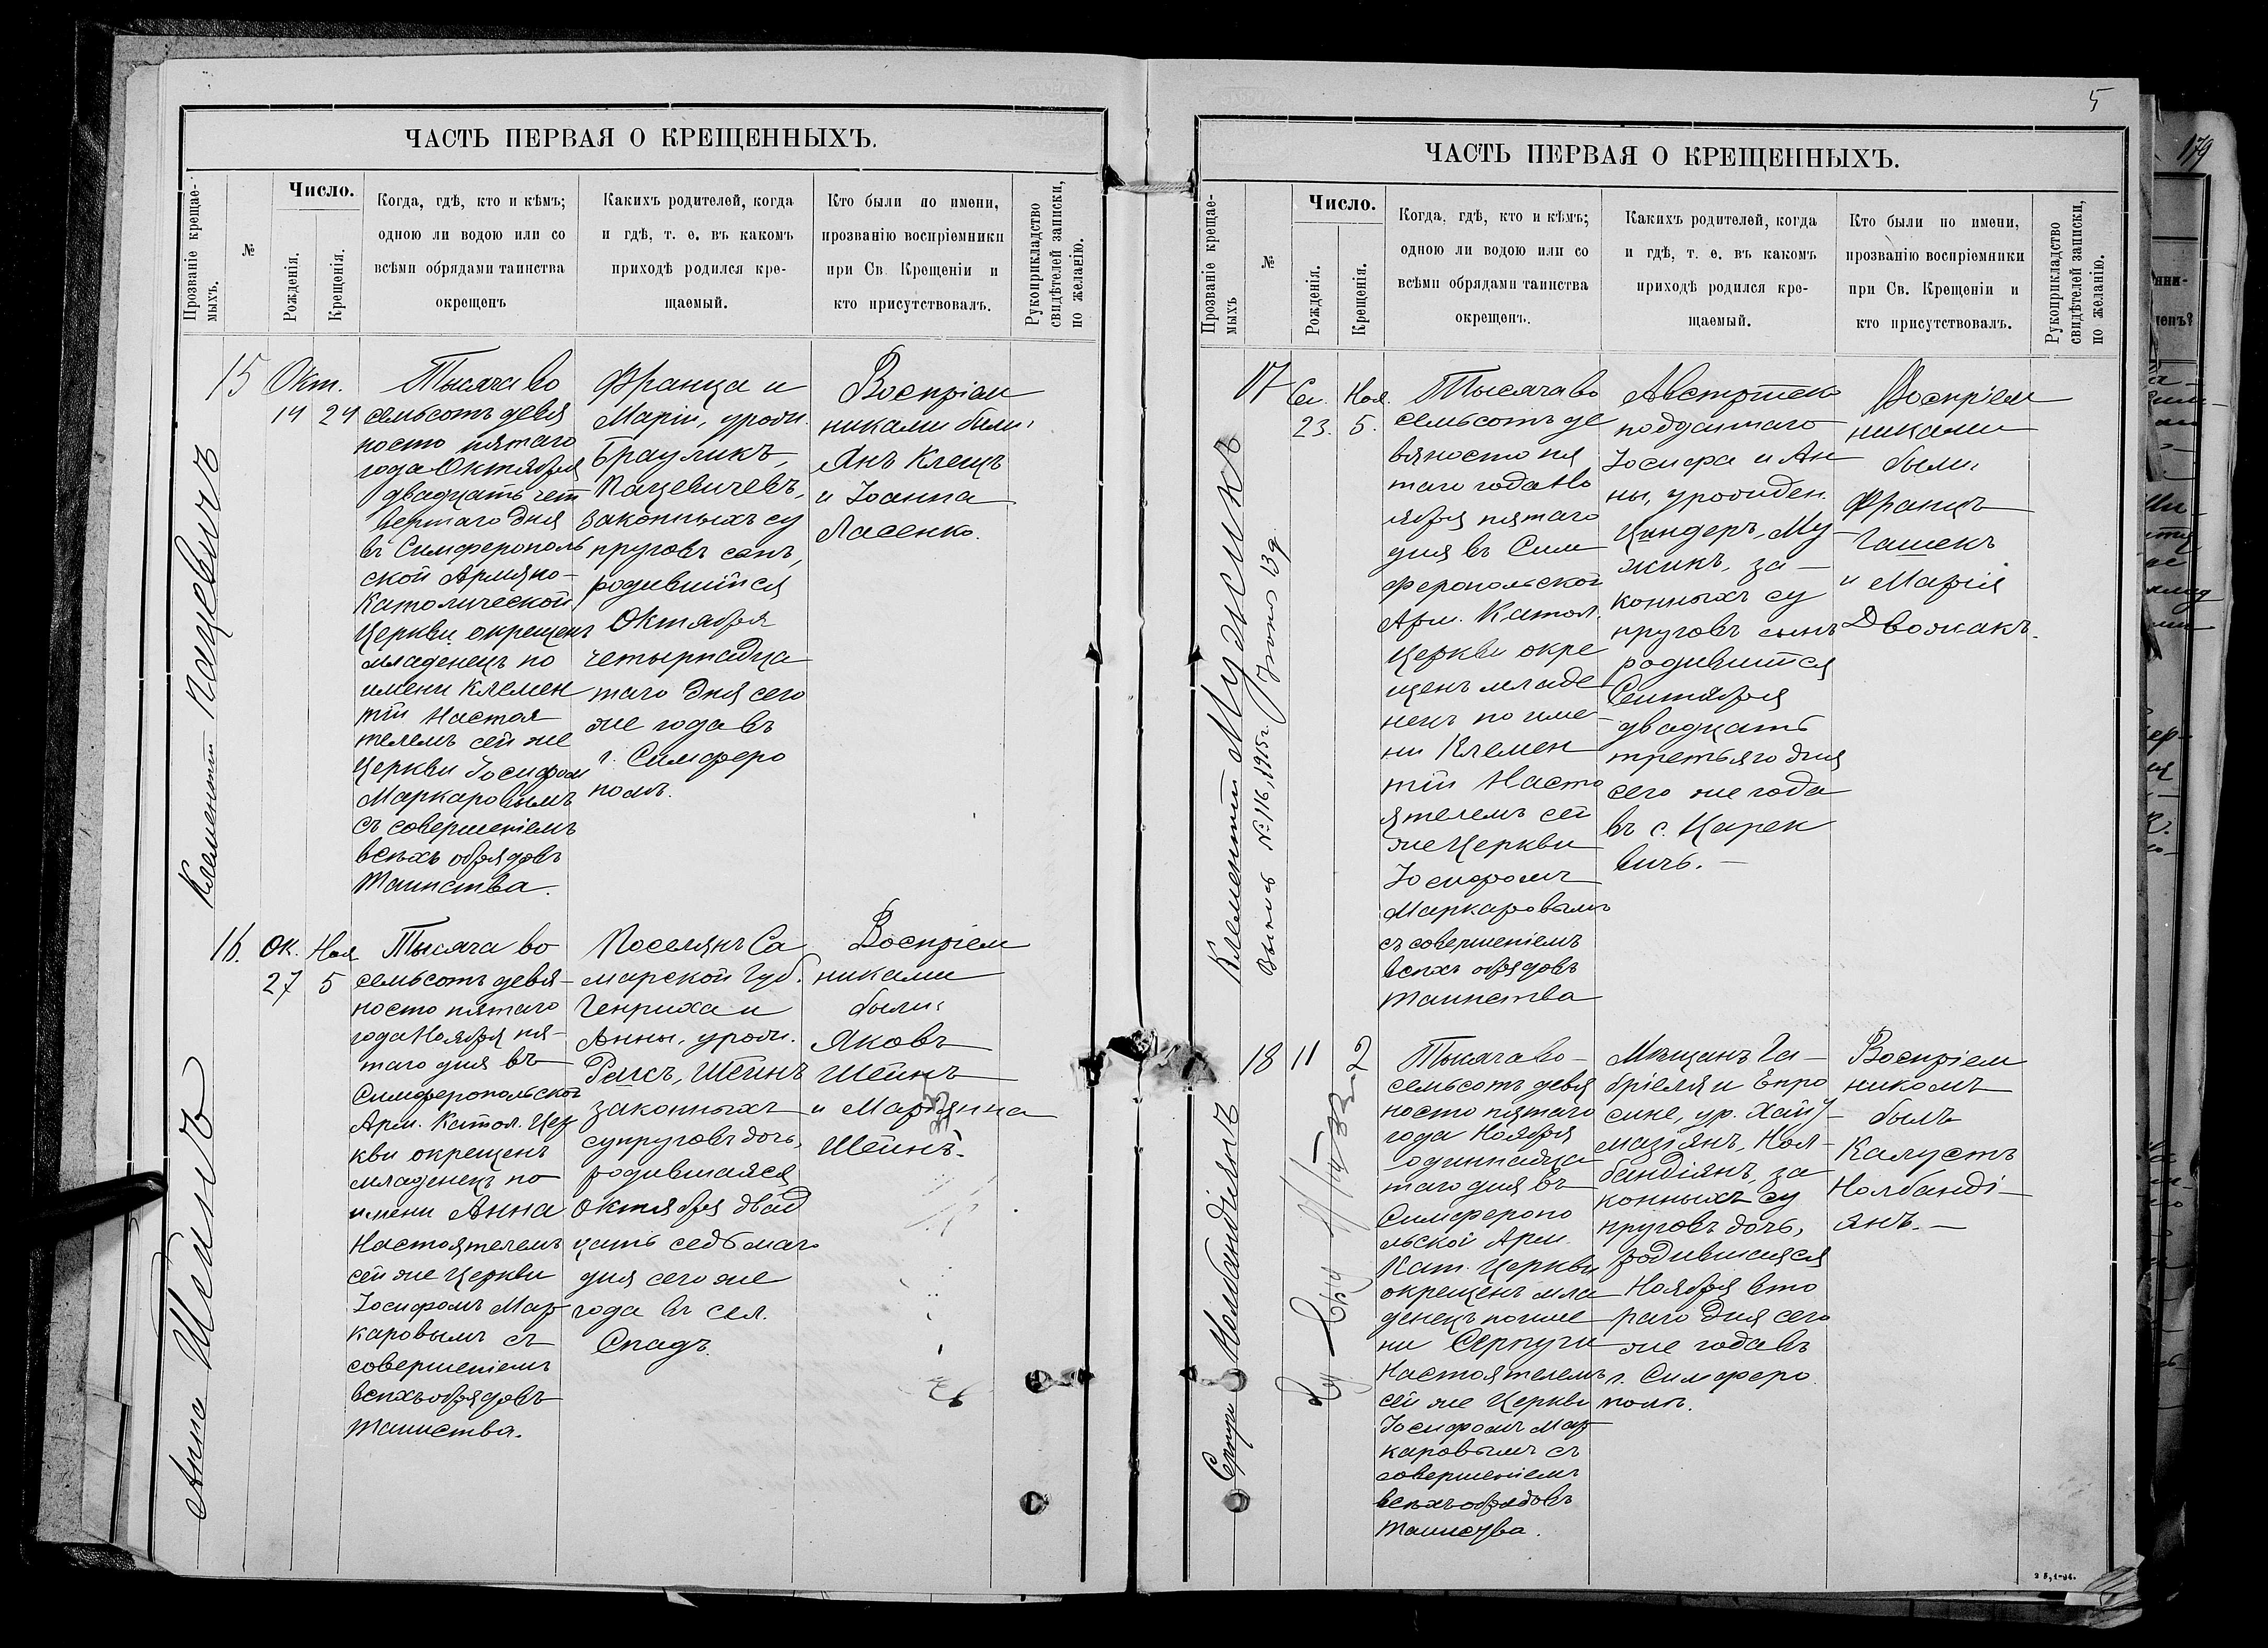 ЧАСТЬ ПЕРВАЯ О КРЕЩЕННЫХЪ.
Прозваніе крещае-
мыхъ.
№
Число.
Рожденія.
Крещенія.
Когда, гдѣ, кто и кѣмъ;
одною ли водою или со
всѣми обрядами таинства
окрещенъ
Какихъ родителей, когда
и гдѣ, т. е. въ какомъ
приходѣ родился кре-
щаемый.
Кто были по имени,
прозванію воспріемники
при Св. Крещеніи и
кто присутствовалъ.
Рукоприкладство
свидѣтелей записки,
по желанію.
Климентій Пацевичъ
15
Окт.
14 24
Тысяча во
семьсотъ девя
носто пятаго
года Октября
двадцать чет
вертаго дня
въ Симферополь
ской Армяно-
Католической
Церкви окрещенъ
младенецъ по
имени Клемен
тій Настоя
телемъ сей же
Церкви Іосифом
Маркаровымъ
съ совершеніемъ
всѣхъ обрядовъ
Таинства.
Франца и
Маріи, урожд.
Брауликъ,
Пацевичевъ,
законныхъ су
пруговъ сынъ,
родившійся
Октября
четырнадца
таго дня сего
же года въ
г. Симферо
полѣ.
Воспріем
никами были:
Янъ Клецъ
и Іоанна
Ласенко.
Анна Шеинъ
16.
Ок. Ноя
27 5
Тысяча во
семьсотъ девя-
носто пятаго
года Ноября пя-
таго дня въ
Симферопольской
Арм. Катол. Цер
кви окрещенъ
младенецъ по
имени Анна
Настоятелемъ
сей же Церкви
Іосифомъ Мар
каровымъ съ
совершеніемъ
всѣхъ обрядовъ
Таинства.
Поселянъ Са
марской Губ.
Генриха и
Анны, урожд.
Шеинъ
законныхъ
супруговъ дочь,
родившаяся
Октября двад
цать седьмаго
дня сего же
года въ сел.
Спадъ.
Воспріем
никами
были:
Яковъ
Шеинъ
и Маріанна
Шеинъ.
5
ЧАСТЬ ПЕРВАЯ О КРЕЩЕННЫХЪ.
Прозваніе крещае-
мыхъ
№
Число.
Рожденія.
Крещенія.
Когда, гдѣ, кто и кѣмъ;
одною ли водою или со
всѣми обрядами таинства
окрещенъ.
Какихъ родителей, когда
и гдѣ, т. е. въ какомъ
приходѣ родился кре-
щаемый.
Кто были по имени,
прозванію воспріемники
при Св. Крещеніи и
кто присутствовалъ.
Рукоприкладство
свидѣтелей записки,
по желанію.
Клементій Мужикъ
№ 116, 1915 г. Іюня 13 д
17
Се. Ноя.
23. 5.
Тысяча во
семьсотъ де
вяносто пя
таго года Но
ября пятаго
дня въ Сим
феропольской
Арм. Катол.
Церкви окре
щенъ младе
нецъ по име
ни Клемен
тій Насто
ятелемъ сей
же Церкви
Іосифомъ
Маркаровымъ
съ совершеніемъ
всѣхъ обрядовъ
Таинства
подданнаго
Іосифа и Ан
ны, урожден.
Циндеръ, Му-
жикъ, за-
конныхъ су
пруговъ сынъ
родившійся
Сентября
двадцать
третьяго дня
сего же года
въ с. Царек
вичъ.-
Воспріем
никами
были:
Францъ
Гашекъ
и Марія
Двожакъ.
Серпуги Налбандіянъ
18
11 2
Тысяча во-
семьсотъ девя
носто пятаго
года Ноября
одиннадца
таго дня въ
Симферопо
льской Арм.
Кат. Церкви
окрещенъ мла
денецъ по име
ни Серпуги
Настоятелемъ
сей же Церкви
Іосифомъ Мар
каровымъ съ
совершеніемъ
всѣхъ обрядовъ
Таинства.
Мѣщанъ Га-
бріеля и Епро
сине, ур.
Нал-
бандіянъ, за
конныхъ су
пруговъ дочь,
родившаяся
Ноября вто
раго дня сего
же года въ
г. Симферо
полѣ.
Воспріем
никомъ
былъ
Калустъ
Налбанді-
янъ.-
179